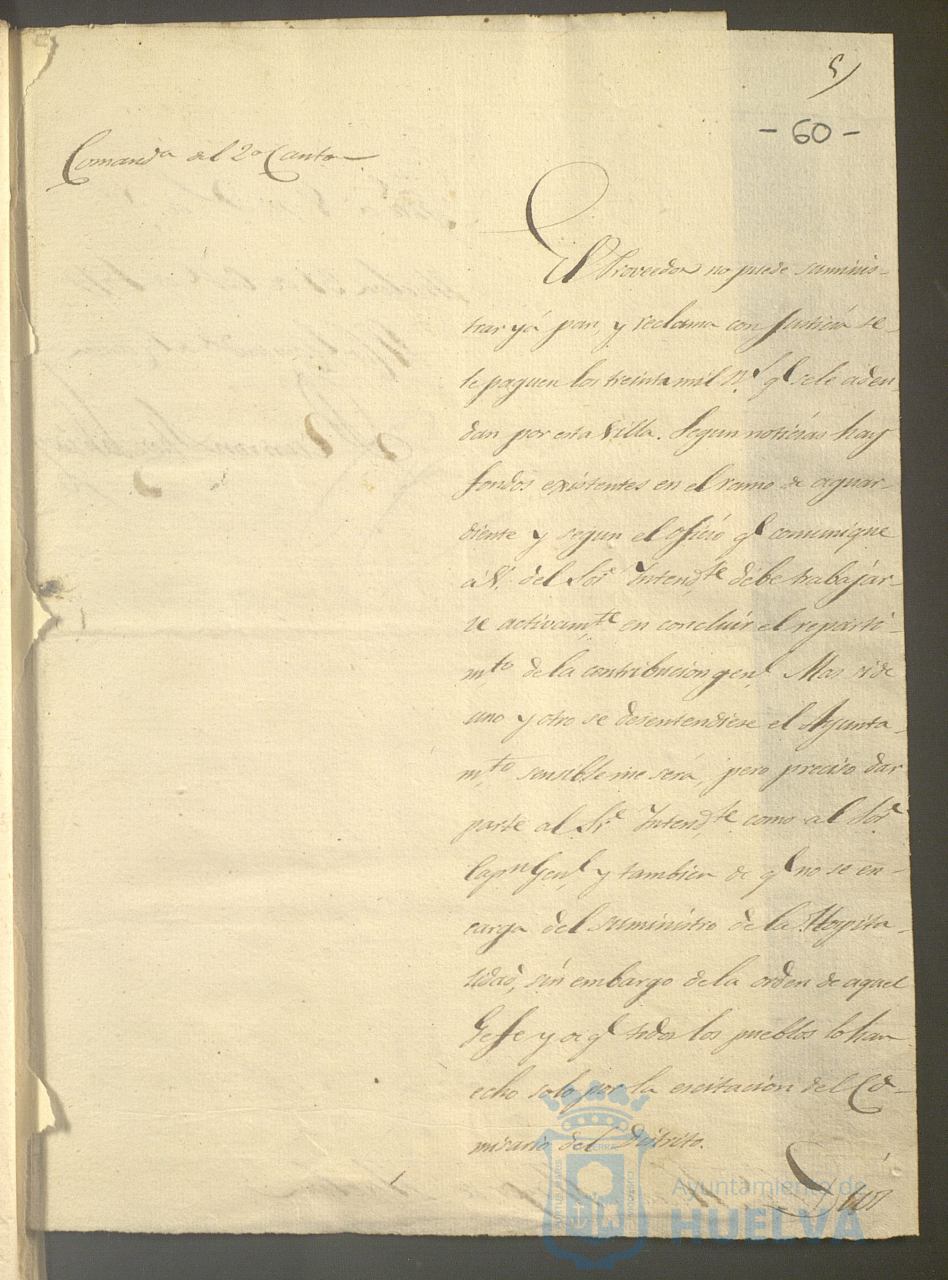 5/
- 60 -
Comanda del 2º Canton
El Proveedor no puede suminis-
trar yá pan, y reclama con Justicia se
le paguen los treinta mil Rˢ qᵉ se le adeu-
dan por esta Villa. Segun noticias hay
fondos existentes en el ramo de aguar-
diente y segun el oficio qᵉ comuniqué
á V. del Sor. Intendᵗᵉ debe trabajar-
se activamᵗᵉ en concluir el reparti-
mᵗᵒ de la contribucion genˡ. Mas si de
uno y otro se desentendiese el Ayunta-
mᵗᵒ sensible me será, pero preciso dar
parte al Sr. Intendᵗᵉ como al Sor.
Capⁿ Genˡ y tambien de qᵉ no se en-
carga del suministro de la Hospita-
lidad, sin embargo de la orden de aquel
Gefe y de qᵉ todos los pueblos lo han
echo solo por la escitacion del Co-
misario del Distrito.
Dios
Ayuntamiento de
HUELVA